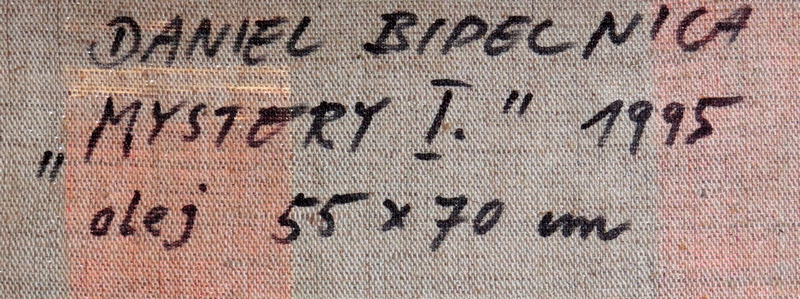 DANIEL BIDELNICA
„MYSTERY I.” 1995
olej 55 x 70 cm